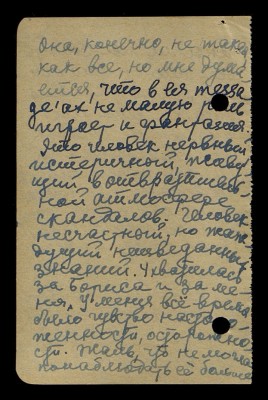 Она, конечно, не такая
как все, но мне дума
ется, что в ея тесза
делах не малую роль
играет и фантазия.
Это человек нервный
истеричный, живу
щий в отвратитель
ной атмосфере
скандалов. Человек
несчастной, но жаж
дущий неизведанных
знаний. Ухватилась
за Бориса и за ме
ня. У меня всё время
было чувство насторо
женности, осторожно
сти. Жаль, что не могла
понаблюдать её больше